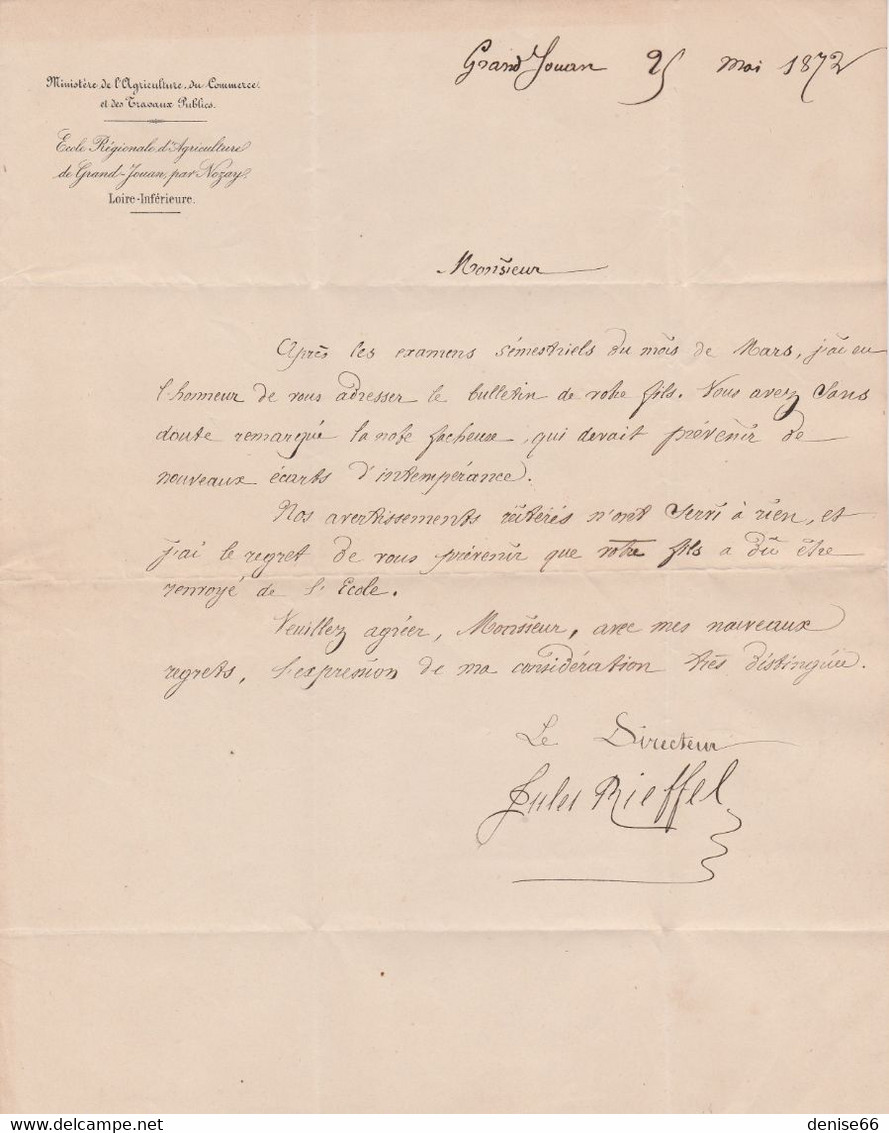 Grand Jouan 25 Mai 1872
Ministère de l'Agriculture, du Commerce
et des Travaux Publics.
Ecole Régionale d'Agriculture
de Grand-Jouan, par Nozay.
Loire-Inférieure.
Monsieur
Après les examens sémestriels du mois de Mars, j'ai eu
l'honneur de vous adresser le bulletin de votre fils. Vous avez sans
doute remarqué la note facheuse, qui devait prévenir de
nouveaux écarts d'intempérance.
Nos avertissements réitérés n'ont servi à rien, et
j'ai le regret de vous prévenir que votre fils a dû être
renvoyé de l'Ecole.
Veuillez agréer, Monsieur, avec mes nouveaux
regrets, l'expression de ma considération très distinguée.
Le Directeur
Jules Rieffel
denise66